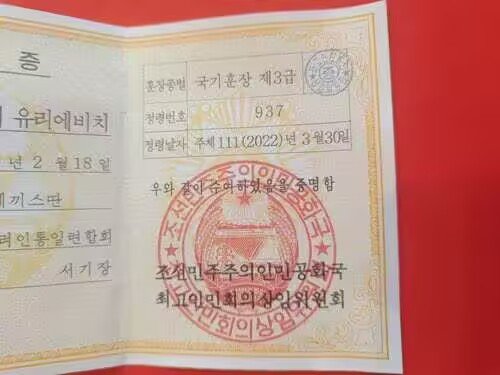 증
유리에비치
년 2 월 18 일
끼스딴
인통일련합회
서기장
훈장종별 국기훈장 제3급
정령번호 937
정령날자 주체 111 (2022) 년 3 월 30 일
우와 같이 수여하였음을 증명함
조선민주주의인민공화국
최고인민회의상임위원회
조선민주주의인민공화국
최고인민회의상임위원회